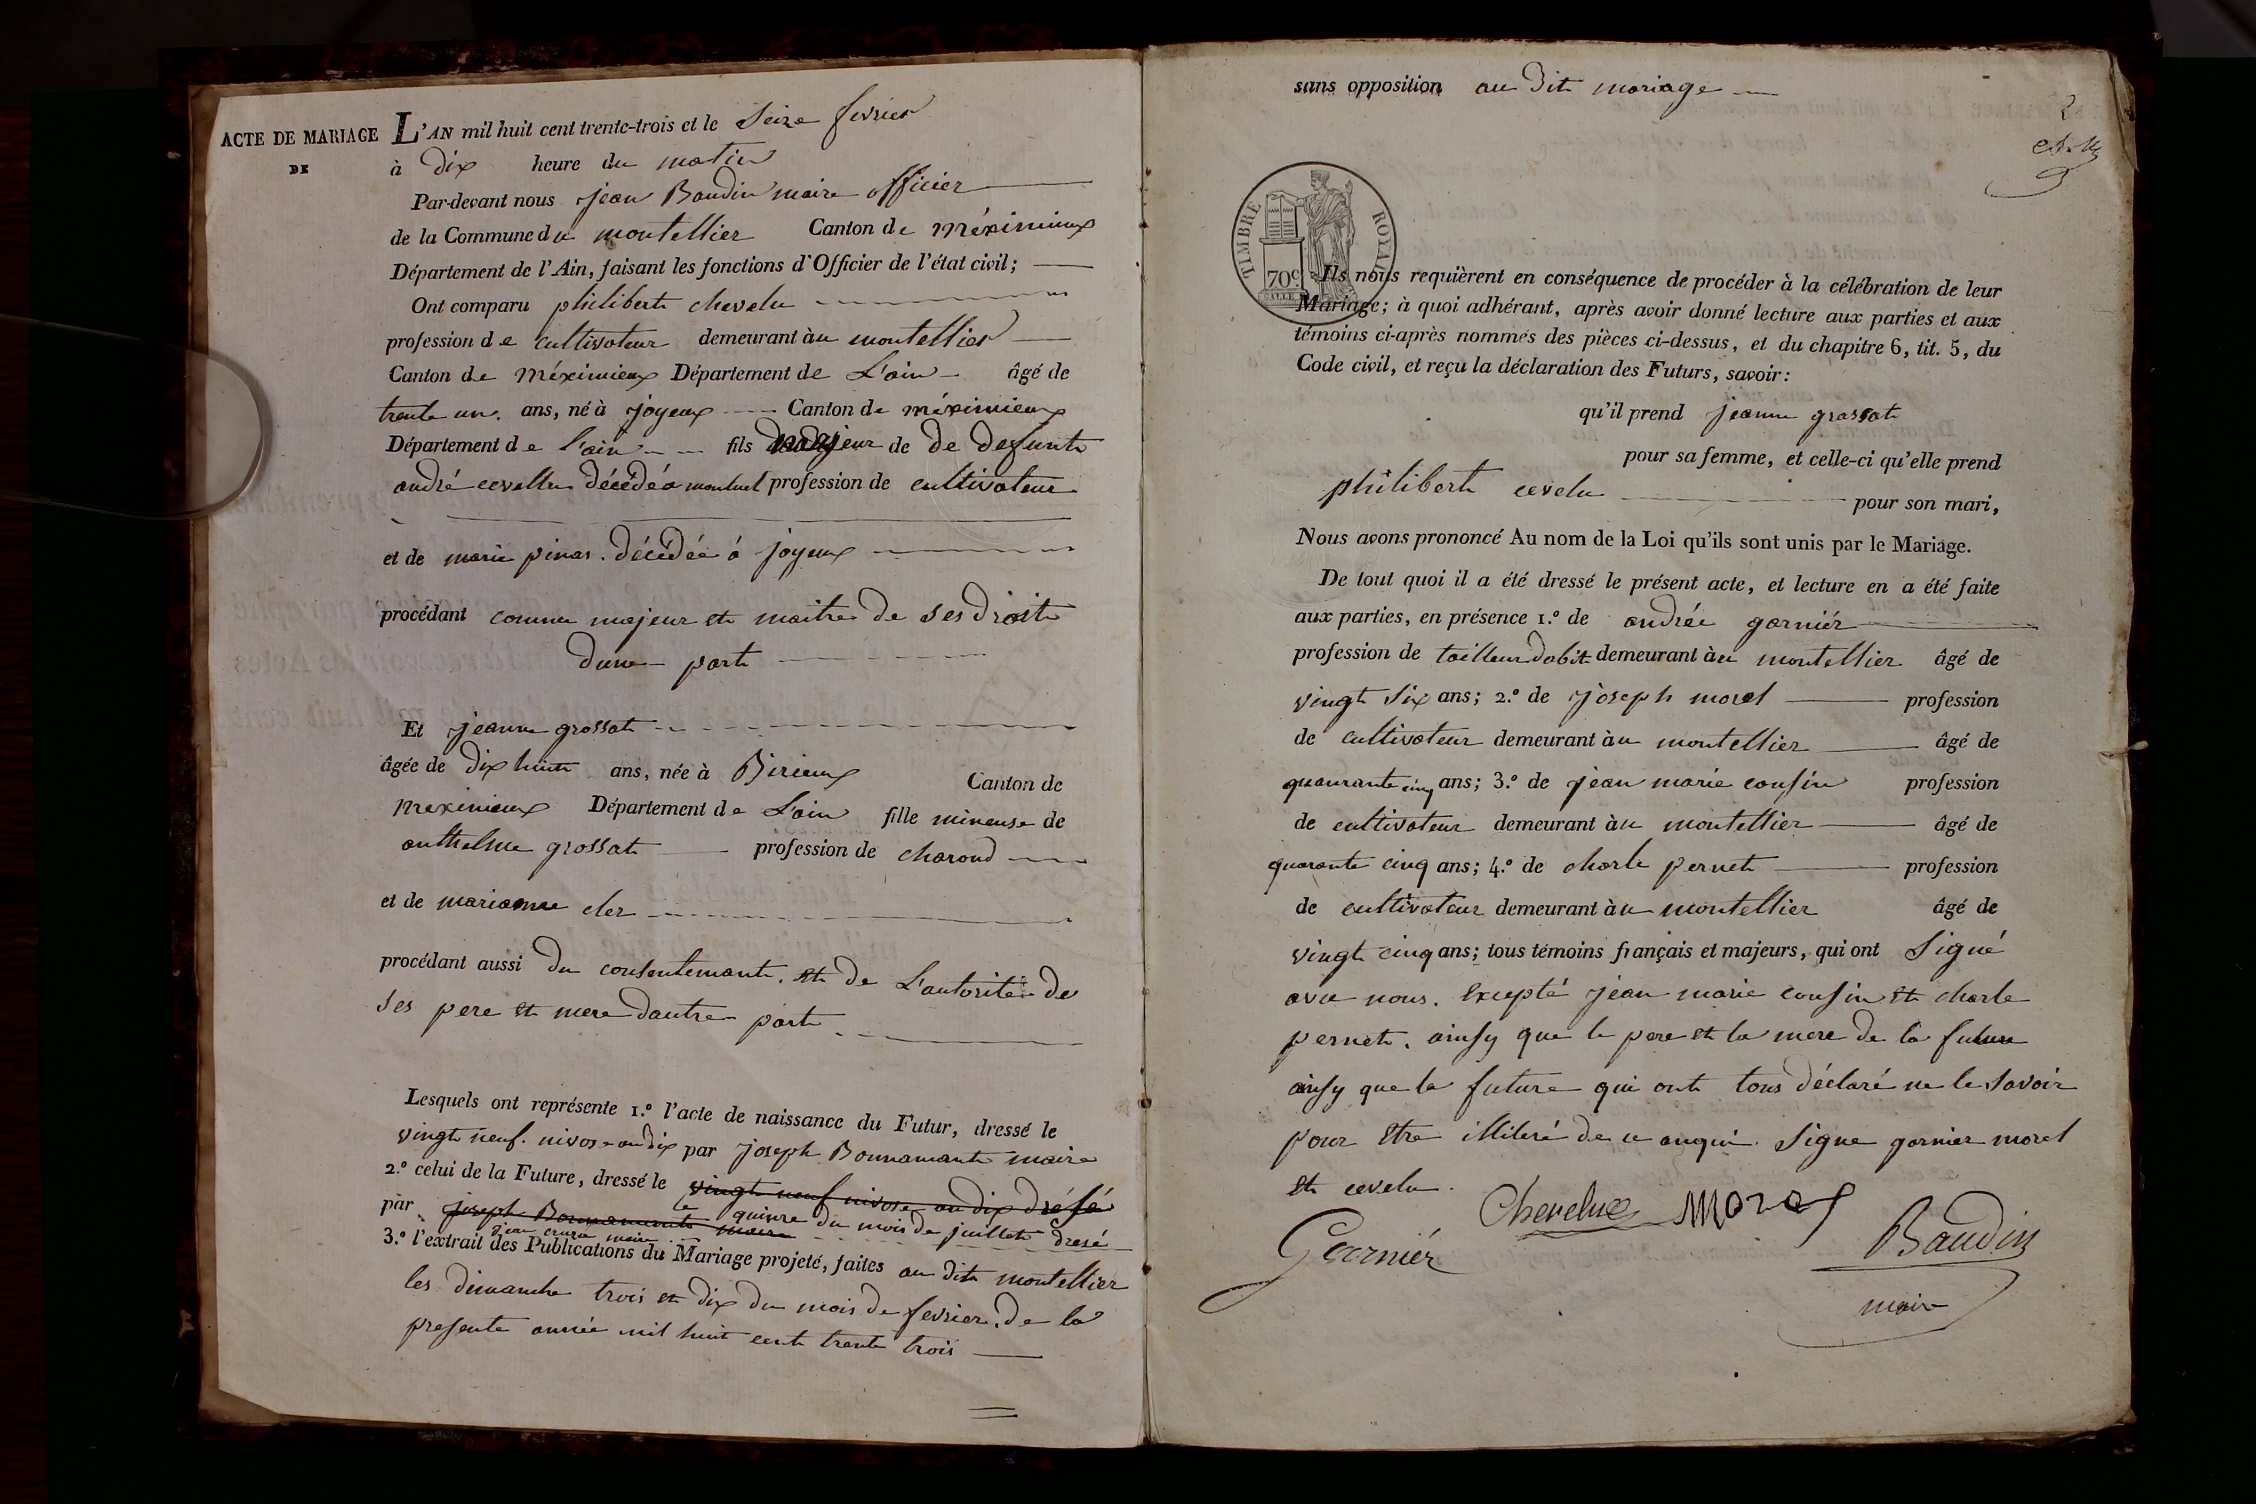 ACTE DE MARIAGE
DE
L'AN mil huit cent trente-trois et le Seize fevrier
à Dix heure du matin
Par-devant nous jean Baudin maire officier
de la Commune du montellier Canton de méximieux
Département de l'Ain, faisant les fonctions d'Officier de l'état civil;
Ont comparu philibert chevelu
profession de cultivateur demeurant àu montellier
Canton de méximieux Département de L'ain âgé de
trente un ans, né à joyeux Canton de méximieux
Département de l'ain fils majeur de de defunt
andré cevellu décédé a montuel profession de cultivateur
et de marie pinas décédée á joyeux
procédant comme majeur et maitre de ses droits
dune part
Et jeanne grossat
âgée de dix huit ans, née à Birieux Canton de
meximieux Département de L'ain fille mineuse de
anthelme grossat profession de charond
et de marianne cler
procédant aussi du consentemant et de L'autorité de
ses pere et mere dautre part
Lesquels ont représente 1.° l'acte de naissance du Futur, dressé le
vingt neuf nivose an dix par joseph Bonnamant maire
2.° celui de la Future, dressé le vingt neuf nivose an dix drésé
le quinze du mois de juillet dresé
par joseph Bonnamant maire
jean maire
3.° l'extrait des Publications du Mariage projeté, faites au dit montellier
les dimanche trois et dix du mois de fevrier de la
presente année mil huit cent trente trois
sans opposition au dit mariage
2
TIMBRE ROYAL
70 c.
Ils nous requièrent en conséquence de procéder à la célébration de leur
Mariage; à quoi adhérant, après avoir donné lecture aux parties et aux
témoins ci-après nommés des pièces ci-dessus, et du chapitre 6, tit. 5, du
Code civil, et reçu la déclaration des Futurs, savoir:
qu'il prend jeanne grassat
pour sa femme, et celle-ci qu'elle prend
philibert cevelu pour son mari,
Nous avons prononcé Au nom de la Loi qu'ils sont unis par le Mariage.
De tout quoi il a été dressé le présent acte, et lecture en a été faite
aux parties, en présence 1.° de andrée garniér
profession de tailleur dabit demeurant àu montellier âgé de
vingt six ans; 2.° de joseph morel profession
de cultivateur demeurant àu montellier âgé de
quaurante cinq ans; 3.° de jean marie cousin profession
de cultivateur demeurant àu montellier âgé de
quarante cinq ans; 4.° de charle pernet profession
de cultivateur demeurant àu montellier âgé de
vingt cinq ans; tous témoins français et majeurs, qui ont Signé
avec nous. excepté jean marie cousin et charle
pernet. ainsy que le pere et la mere de la future
ainsy que la future qui ont tous déclaré ne le savoir
pour etre illiteré de ce anquis. Signe garnier morel
et cevelu.
Chevelue Morel
Garniér Baudin
maire